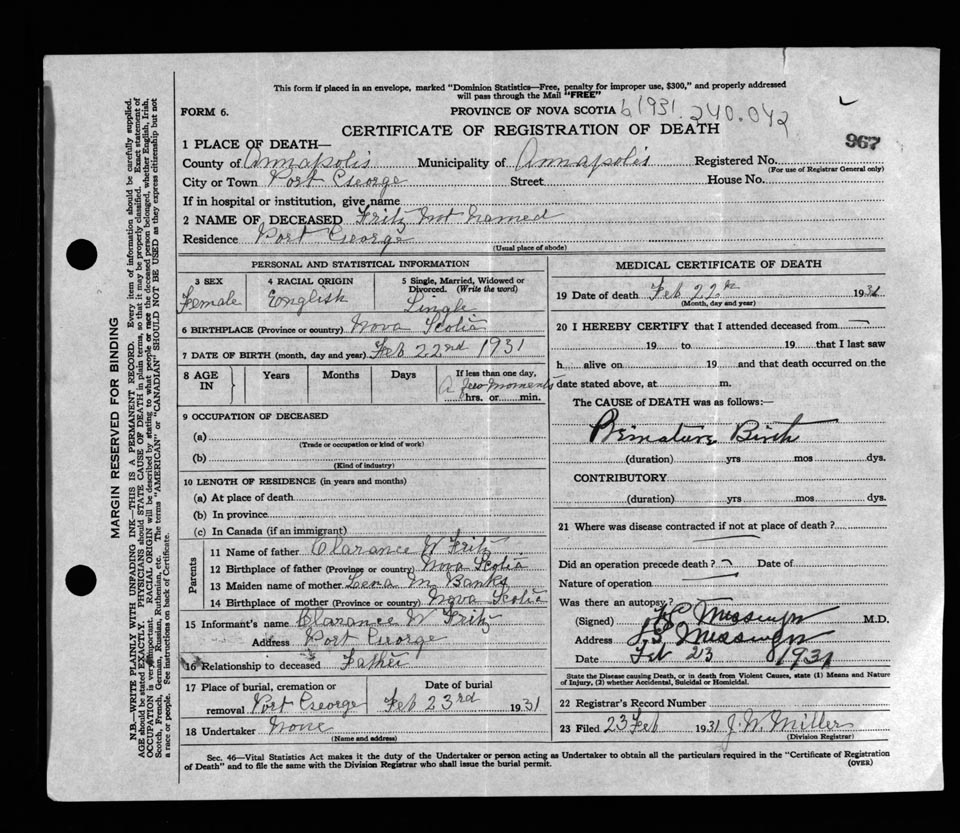 This form if placed in an envelope, marked "Dominion Statistics—Free, penalty for improper use, $300," and properly addressed
will pass through the Mail "FREE"
FORM 6.
PROVINCE OF NOVA SCOTIA 6 1931. 240.042
CERTIFICATE OF REGISTRATION OF DEATH
967
1 PLACE OF DEATH—
County of Annapolis Municipality of Annapolis Registered No.
(For use of Registrar General only)
City or Town Port George Street House No.
If in hospital or institution, give name
2 NAME OF DECEASED Fritz Not Named
Residence Port George
(Usual place of abode)
PERSONAL AND STATISTICAL INFORMATION
3 SEX Female
4 RACIAL ORIGIN English
5 Single, Married, Widowed or Divorced. (Write the word) Single
6 BIRTHPLACE (Province or country) Nova Scotia
7 DATE OF BIRTH (month, day and year) Feb 22nd 1931
8 AGE IN Years Months Days If less than one day, A few moments hrs. or min.
9 OCCUPATION OF DECEASED
(a)
(Trade or occupation or kind of work)
(b)
(Kind of industry)
10 LENGTH OF RESIDENCE (in years and months)
(a) At place of death
(b) In province
(c) In Canada (if an immigrant)
Parents
11 Name of father Clarance W Fritz
12 Birthplace of father (Province or country) Nova Scotia
13 Maiden name of mother Lena M Banks
14 Birthplace of mother (Province or country) Nova Scotia
15 Informant's name Clarance W Fritz
Address Port George
16 Relationship to deceased Father
17 Place of burial, cremation or removal Port George
Date of burial Feb 23rd 1931
18 Undertaker None
(Name and address)
MEDICAL CERTIFICATE OF DEATH
19 Date of death Feb 22nd 1931
(Month, day and year)
20 I HEREBY CERTIFY that I attended deceased from
19 to 19 that I last saw
h alive on 19 and that death occurred on the
date stated above, at m.
The CAUSE of DEATH was as follows:—
Premature Birth
(duration) yrs mos dys.
CONTRIBUTORY
(duration) yrs mos dys.
21 Where was disease contracted if not at place of death?
Did an operation precede death? Date of
Nature of operation
Was there an autopsy?
(Signed) M.D.
Address
Date Feb 23 1931
State the Disease causing Death, or in death from Violent Causes, state (1) Means and Nature
of Injury, (2) whether Accidental, Suicidal or Homicidal.
22 Registrar's Record Number
23 Filed 23 Feb 1931 J. W. Miller
(Division Registrar)
Sec. 46—Vital Statistics Act makes it the duty of the Undertaker or person acting as Undertaker to obtain all the particulars required in the "Certificate of Registration
of Death" and to file the same with the Division Registrar who shall issue the burial permit.
(OVER)
MARGIN RESERVED FOR BINDING
N.B.—WRITE PLAINLY WITH UNFADING INK—THIS IS A PERMANENT RECORD. Every item of information should be carefully supplied.
AGE should be stated EXACTLY. PHYSICIANS should STATE CAUSE OF DEATH in plain terms, so that it may be properly classified. Exact statement of
OCCUPATION is very important. RACIAL ORIGIN will be described by stating to what people or race the deceased person belonged, whether English, Irish,
Scotch, French, German, Russian, Ruthenian, etc. The terms "AMERICAN" or "CANADIAN" SHOULD NOT BE USED as they express citizenship but not
a race or people. See instructions on back of Certificate.